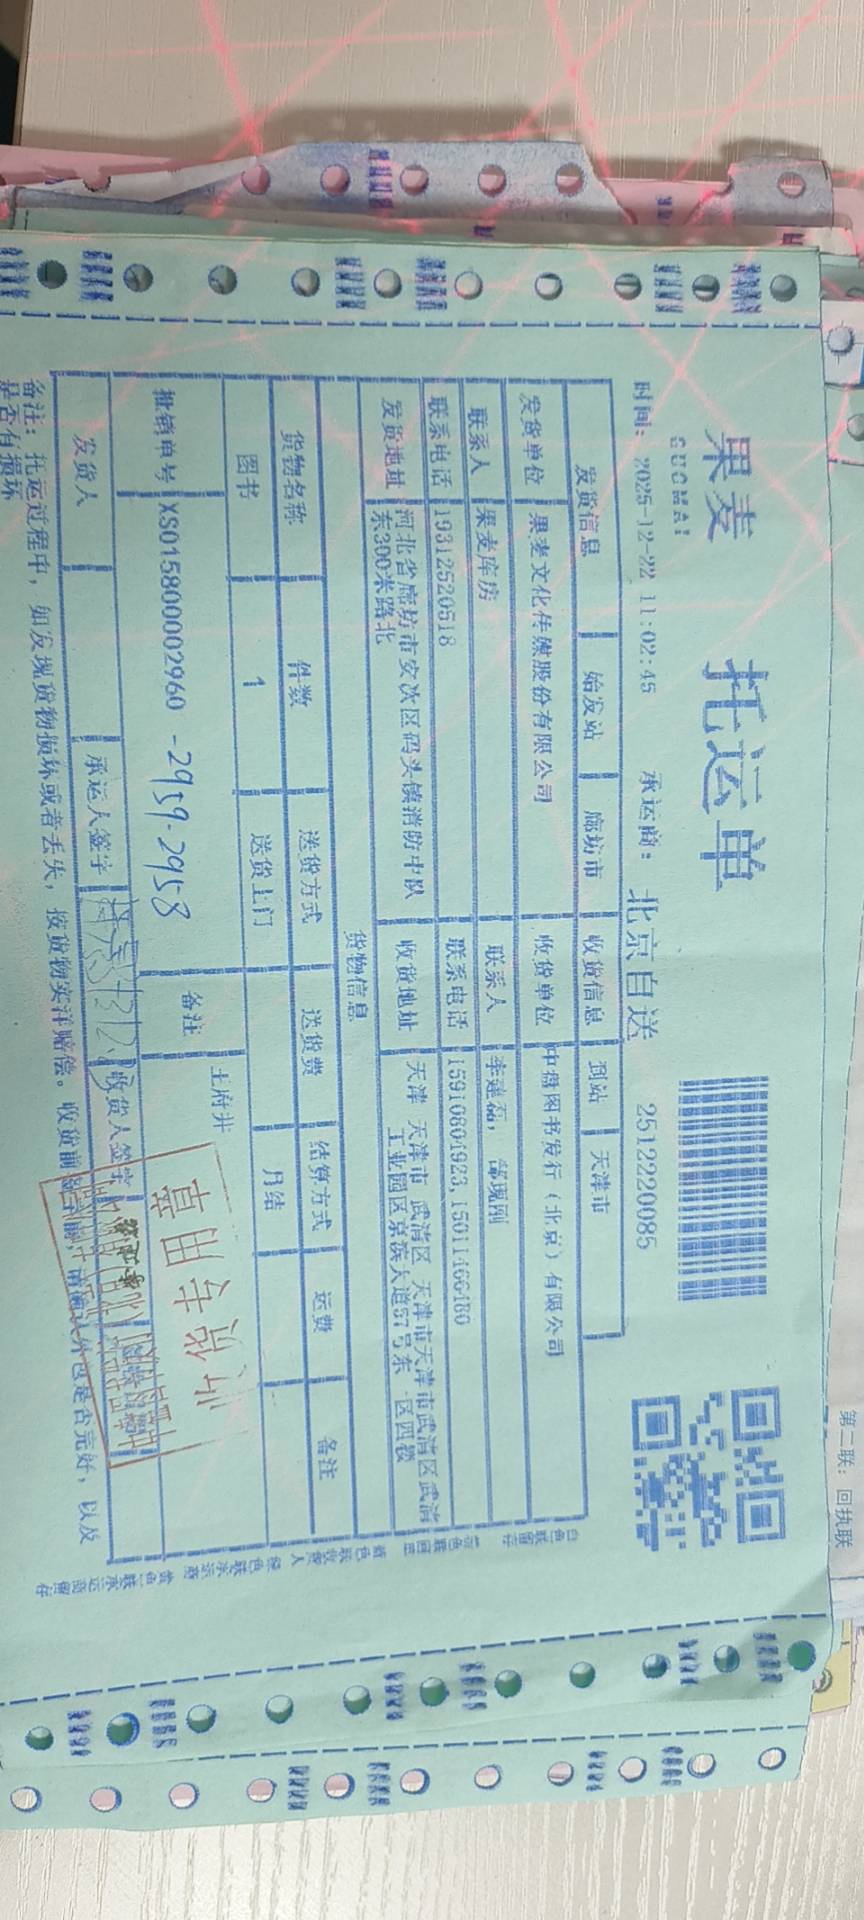 果麦 托运单
GUOMAI
时间: 2025-12-22 11:02:45 承运商: 北京自送 2512220085
发货信息 始发站 廊坊市 收货信息 到站 天津市
发货单位 果麦文化传媒股份有限公司 收货单位 中盘图书发行(北京)有限公司
联系人 果麦库房 联系人 李建磊,
联系电话 19312520518 联系电话 15910804923,15011466480
发货地址 河北省廊坊市安次区码头镇消防中队 收货地址 天津 天津市 武清区 天津市天津市武清区武清
东300米路北 工业园区京滨大道57号东 区四楼
货物信息
货物名称 件数 送货方式 送货费 结算方式 运费 备注
图书 1 送货上门 月结
批销单号 XS015800002960 -2959-2958 备注 王府井
发货人 承运人签字 收货人签字
收货专用章
备注: 托运过程中, 如发现货物损坏或者丢失, 按货物实洋赔偿。收货前 请确认外包是否完好, 以及
是否有损坏
第二联: 回执联